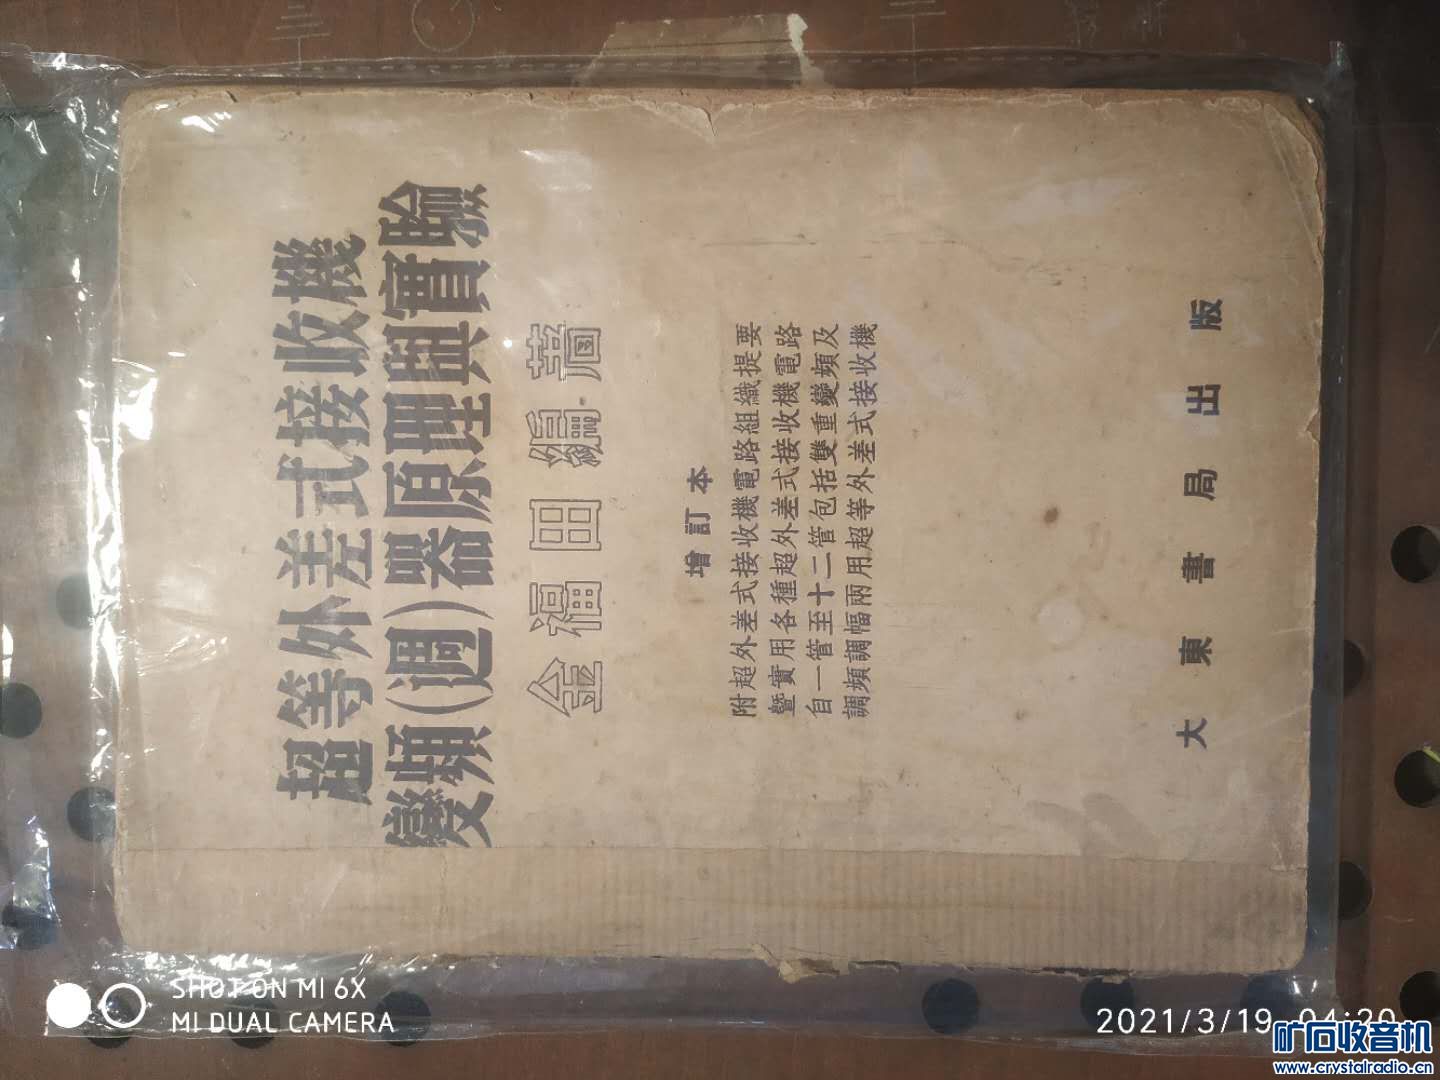 超等外差式接收機
變頻(週)器原理與實驗
金福田編著
增訂本
附超外差式接收機電路組織提要
暨實用各種超外差式接收機電路
自一管至十二管包括雙重變頻及
調頻調幅兩用超等外差式接收機
大東書局出版
SHOT ON MI 6X
MI DUAL CAMERA
2021/3/19 04:20
矿石收音机
www.crystalradio.cn